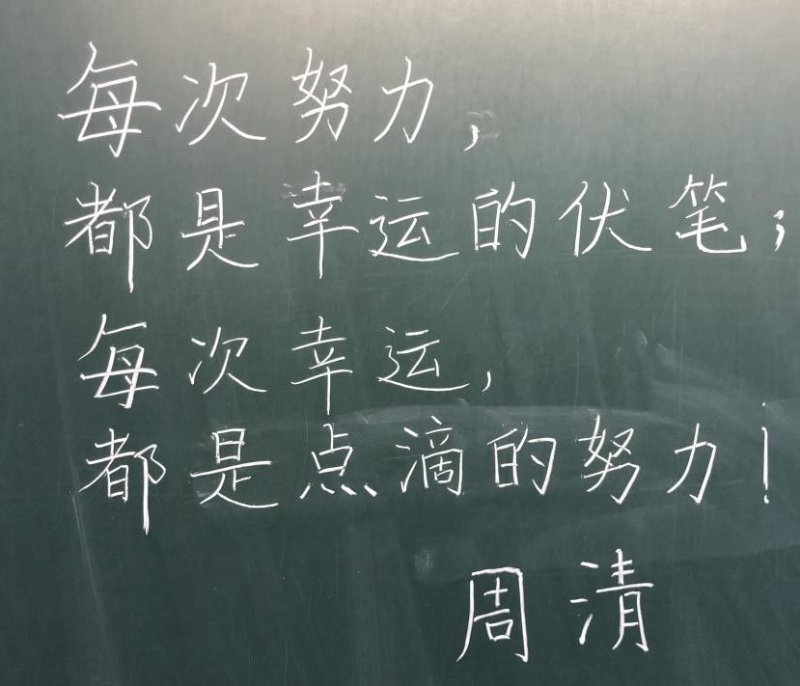 每次努力，
都是幸运的伏笔；
每次幸运，
都是点滴的努力！
周清